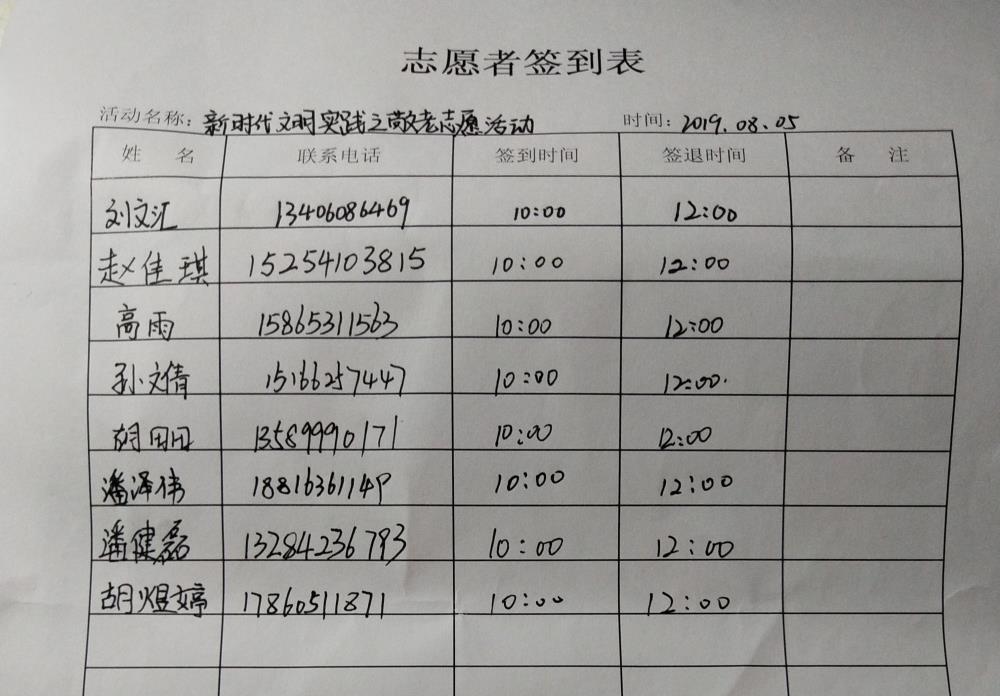 志愿者签到表
活动名称：新时代文明实践之敬老志愿活动 时间：2019.08.05
姓 名 联系电话 签到时间 签退时间 备 注
刘文汇 13406086469 10:00 12:00
赵佳琪 15254103815 10:00 12:00
高雨 15865311563 10:00 12:00
孙文倩 15166257447 10:00 12:00.
胡田田 13589990171 10:00 12:00
潘泽伟 18816361149 10:00 12:00
潘健磊 13284236793 10:00 12:00
胡煜婷 17860511871 10:00 12:00